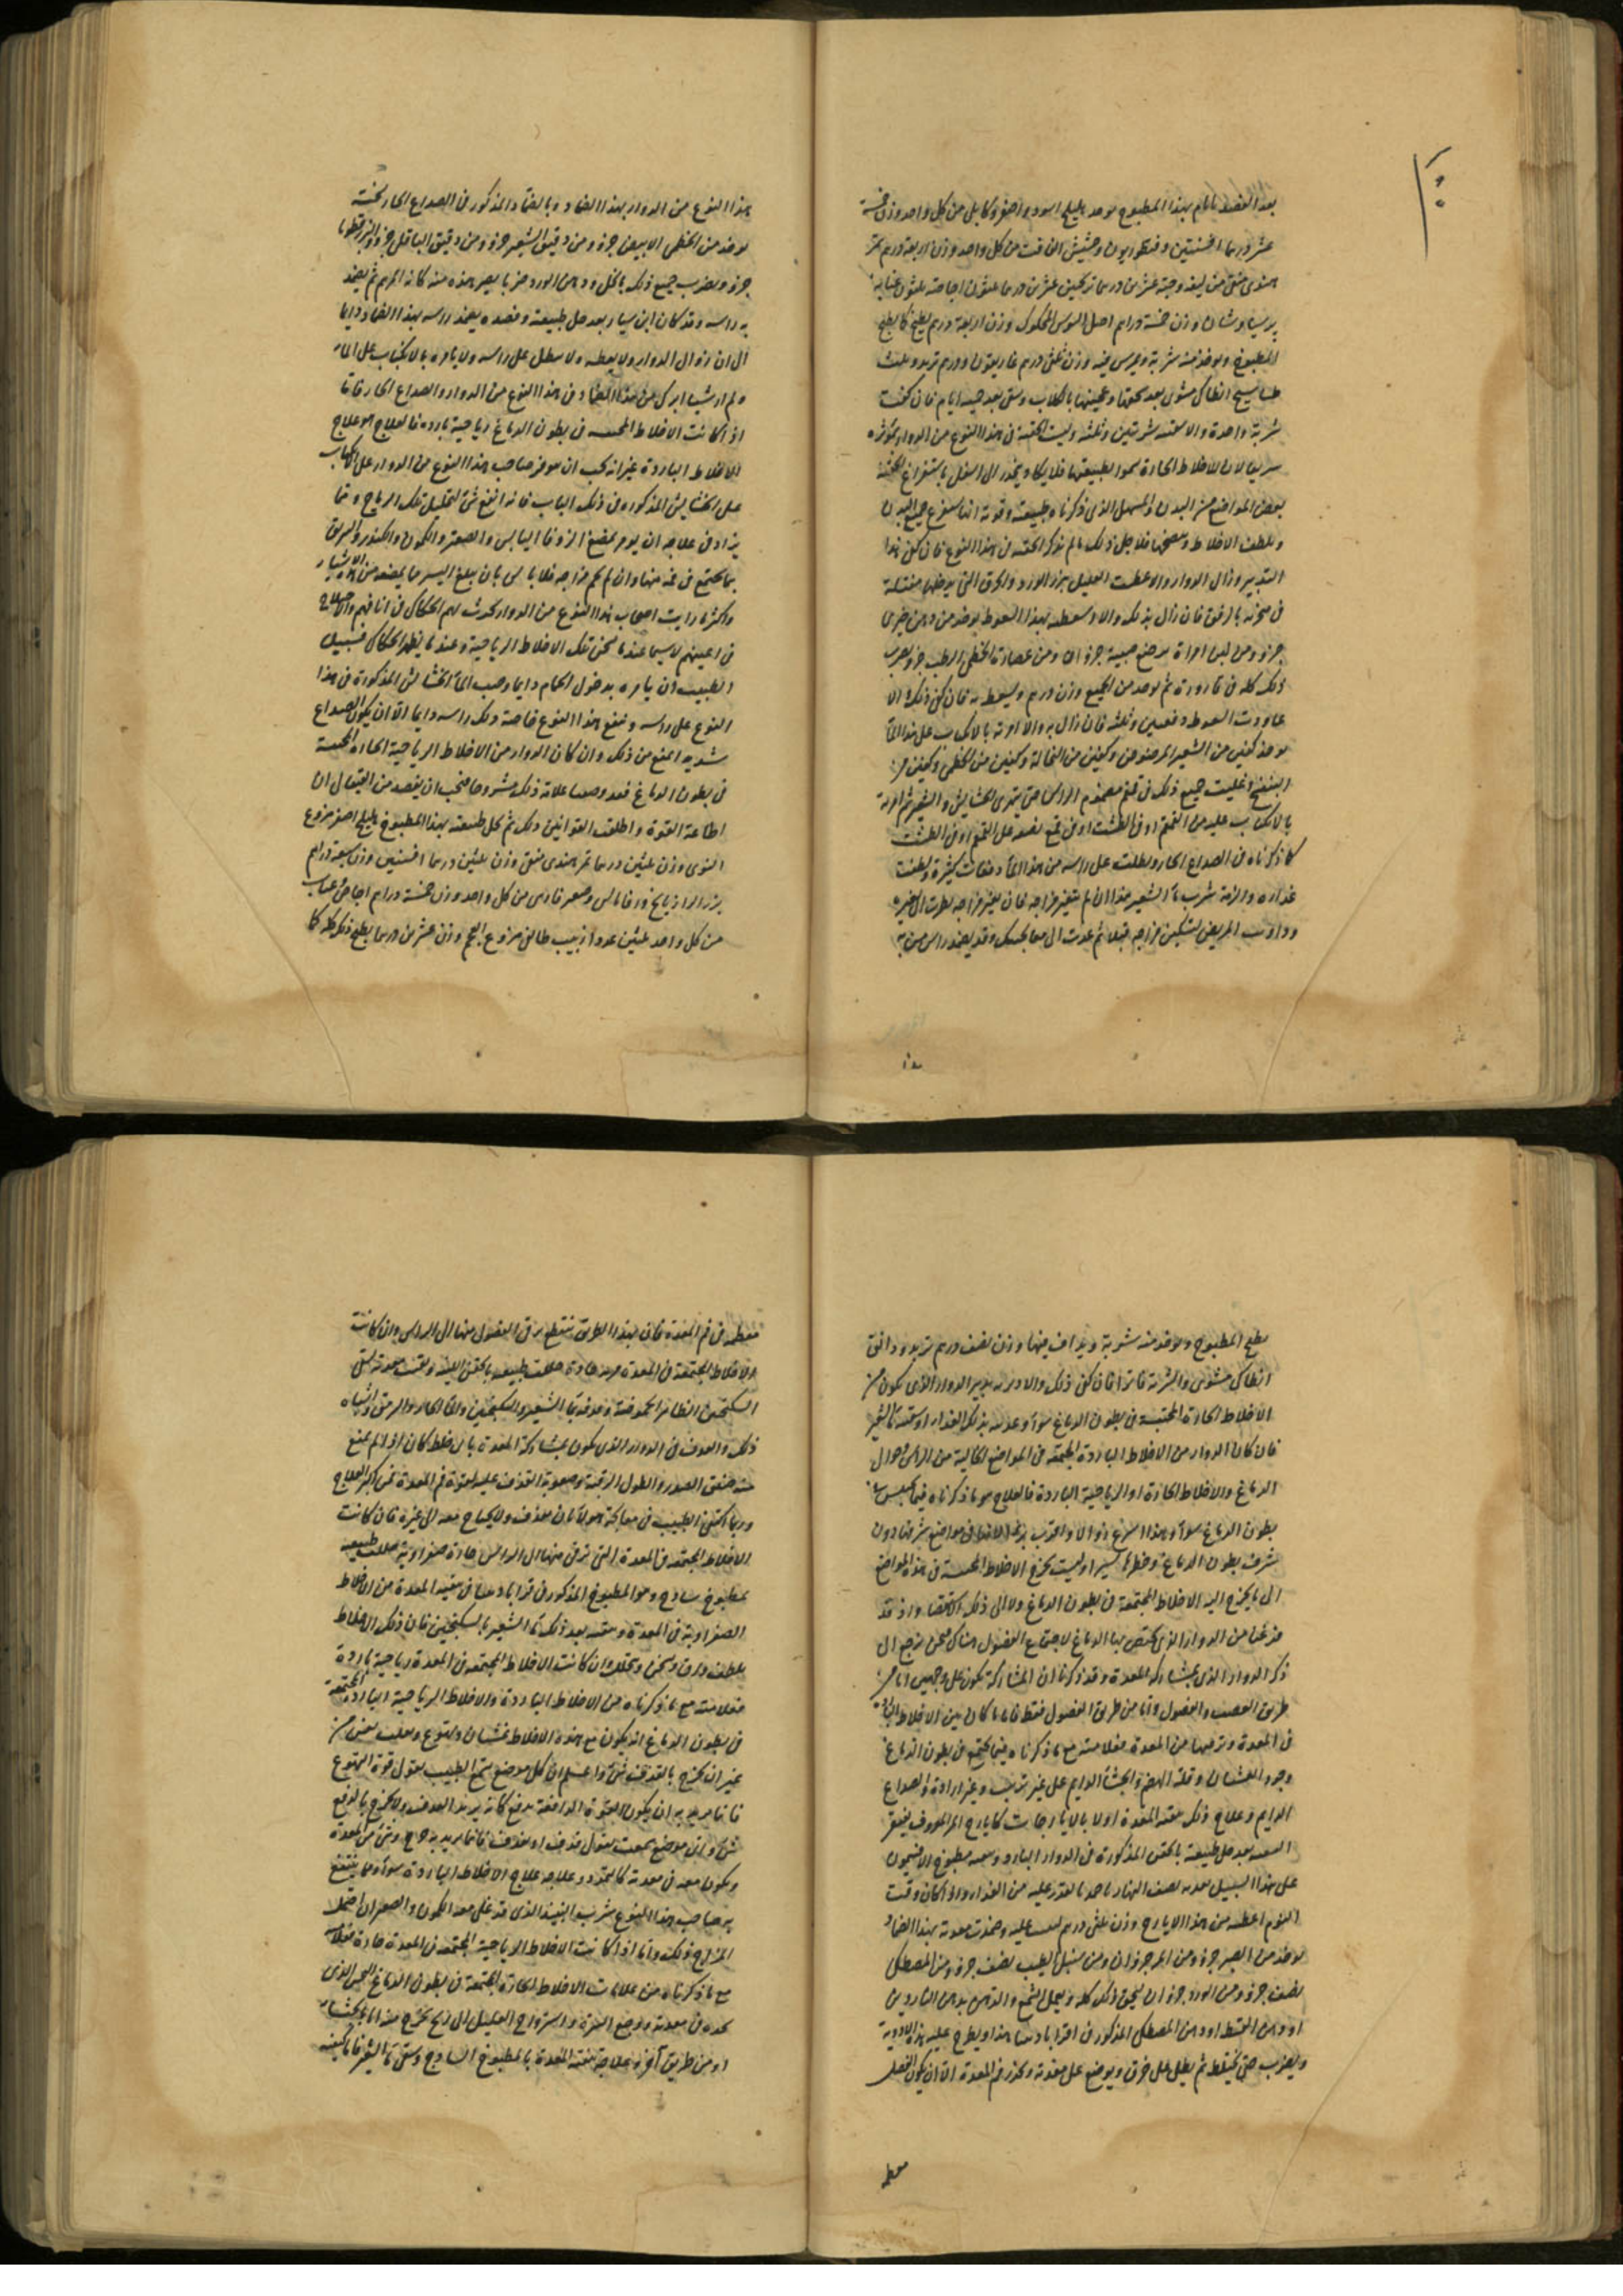 بعد الفصد بايام بهذا المطبوخ يوخذ هليلج اسود واصفر وكابلي من كل واحد وزن خمسة
عشر درهما افسنتين وقنطوريون وحشيش الغافت من كل واحد وزن اربعة درهم تمر
هندي منقى من ليفه وحبه عشرين درهما ترنجبين عشرين درهما عشرون اجاصة ثلثون عنابة
برسياوشان وزن خمسة دراهم اصل السوس المحكوك وزن اربعة درهم يطبخ كما يطبخ
المطبوخ ويوخذ منه شربة ويمرس فيه وزن ثلثي درهم غاريقون ودرهم تربد وثلث
انطاكي مشوي بعد سحقها وعجينها بالجلاب وسقى بعد خمسة ايام فان كفت
شربة واحدة والا سقيته شربتين وثلثة وليست الحقنة في هذا النوع من الدوار بموثره
سريعا لان الاخلاط الحارة تسموا بطبيعتها فلا يكاد ينحدر الى اسفل باستفراغ الحقنة
بعض المواضع من البدن والمسهل الذي ذكرناه طبيعته وقوته انما يستفرغ جميع البدن
ويلطف الاخلاط وينضجها فلاجل ذلك لم نذكر الحقنة في هذا النوع فان كفى هذا
التدبير وزال الدوار والا عطست العليل ببزر الورد والحرق التي يدخلها مفتلة
في منخره بالرفق فان زال بذلك والا وسعطته بهذا السعوط يوخذ من دهن خيري
جزو ومن لبن امراة مرضع صبية جزوان ومن عصارة الخطمي الرطب جزو يضرب
ذلك كله في قارورة ثم يوخذ من الجميع وزن درهم ويسعط به فان كفى ذلك والا
عاودت السعوط دفعتين وثلثة فان زال به والا امرته بالانكباب على هذا الماء
يوخذ كفين من الشعير المرضوض وكفين من النخالة وكفين من الخطمي وكفين من
البنفسج وغليت جميع ذلك في قمقم مضموم الراس حتى يتهرى الحشايش والشعير ثم امرته
بالانكباب عليه من القمقم او في الطشت او في قمع تضعه على القمقم او في الطشت
كما ذكرناه في الصداع الحار ونطلت على راسه من هذا الماء دفعات كثيرة ولطفت
غذاءه والزمته شرب ماء الشعير هذا ان لم يتغير مزاجه فان تغير مزاجه نظرت الى تغيره
وداويت المريض لتسكين مزاجه قبلا ثم عدت الى معالجتك وقد يضمد راس من به
هذا النوع من الدوار بهذا الضماد وبالضماد المذكور في الصداع الحار نسخته
يوخذ من الخطمي الابيض جزو ومن دقيق الشعير جزو ومن دقيق الباقلى جزو والبزرقطونا
جزو ويضرب جميع ذلك بالخل ودهن الورد ضربا يصير هذه منه كانه المرهم ثم يضمد
به راسه وقد كان ابن سيار بعد حل طبيعته وفصده يضمد راسه بهذا الضماد دايما
الى ان زوال الدوار ولا يعطسه ولا ينطل على راسه ولا يامره بالانكباب على الماء
ولم ار شيا ابرك من هذا الضماد في هذا النوع من الدوار والصداع الحار فاما
اذا كانت الاخلاط المحتبسة في بطون الدماغ رياحية باردة فالعلاج هو علاج
الاخلاط الباردة غير انه يجب ان يوخز صاحب هذا النوع من الدوار على الانكباب
على الحشايش المذكورة في ذلك الباب فانه انفع شي لتحليل تلك الرياح ومما
يزاد في علاجه ان يومر بمضغ الزوفا اليابس والصعتر والكمون والكندر والريق
بما يجتمع في فمه منها وان لم يحم مزاجه فلا باس بان يبلع اليسير مما يمضغه من هذه الاشياء
واكثر ما رايت اصحاب هذا النوع من الدوار يحدث لهم الحكاك في انافهم والاختلاج
في اعينهم لاسيما عندما تسخن تلك الاخلاط الرياحية وعندما يظهر الحكاك فسبيل
الطبيب ان يامره بدخول الحمام دايما وصب الماء الحشايش المذكورة في هذا
النوع على راسه وينفع هذا النوع خاصة دلك راسه دايما الا ان يكون الصداع
شديد امنع من ذلك وان كان الدوار من الاخلاط الرياحية الحارة المحتبسة
في بطون الدماغ فقد وصفنا علامة ذلك مشروحا فيجب ان يفصد من القيفال ان
اطاعة القوة واطلقت القوانين ذلك ثم تحل طبيعته بهذا المطبوخ هليلج اصفر منزوع
النوى وزن ثلثين درهما تمر هندي منقى وزن ثلثين درهما افسنتين وزن سبعة دراهم
بزر الرازيانج وزوفا يابس وصعتر فارسي من كل واحد وزن خمسة دراهم اجاص وعناب
من كل واحد ثلثين عددا زبيب طايفي منزوع العجم وزن عشرين درهما يطبخ ذلك كله كما
يطبخ المطبوخ ويوخذ منه شربة ويداف فيها وزن نصف درهم تربد ودانق
انطاكي مشوي والشربة فاترا فان كفى ذلك والا دبرته بتدبير الدوار الذي يكون من
الاخلاط الحارة المحتبسة في بطون الدماغ سواء
فان كان الدوار من الاخلاط الباردة المجتمعة في المواضع الخالية من الراس حوالى
الدماغ والاخلاط الحارة او الرياحية الباردة فالعلاج هو ما ذكرناه فيما يحتبس في
بطون الدماغ سواء وهذا اسرع زوالا واقرب برءا لانها في مواضع شرفها دون
شرف بطون الدماغ وخطرها يسيرا وليست تحوج الاخلاط المحتبسة في هذه المواضع
الى ما يحوج اليه الاخلاط المجتمعة في بطون الدماغ ولا الى ذلك الاستقصا واذ قد
فرغنا من الدوار الذي يختص بها الدماغ لاجتماع الفضول هناك فنحن نرجع الى
ذكر الدوار الذي بمشاركة المعدة وقد ذكرنا ان المشاركة تكون على وجهين اما من
طريق العصب والفضول واما من طريق الفضول فقط فاما ما كان من الاخلاط الباردة
في المعدة وترقيها من المعدة فعلامته مع ما ذكرناه فيما يجتمع في بطون الدماغ
وجود الغثيان وقلة الهضم والجشاء الدايم على غير ترتيب وغير ارادة والصداع
الدايم وعلاج ذلك تنقية المعدة اولا بالايارجات كايارج المعروف بفيقرا
بعد حل طبيعته بالحقن المذكورة في الدوار البارد وسقيه مطبوخ الافتيمون
على هذا السبيل تغديه نصف النهار باحد ما تقدر عليه من الغذاء واذا كان وقت
النوم اعطيته من هذا الايارج وزن ثلثي درهم وضمدت معدته بهذا الضماد
يوخذ من الصبر جزو ومن المر جزوان ومن سنبل الطيب نصف جزو ومن المصطكي
نصف جزو ومن الورد جزوان يسحق ذلك كله ويعمل الشمع والدهن بدهن الناردين
او دهن القسط او دهن المصطكي المذكور في اقراباديننا هذا ويطرح عليه هذه الادوية
ويضرب حتى يختلط ثم يطلى على خرق ويوضع على معدته وتحذر فم المعدة الا ان يكون الفضل
معظمه في فم المعدة فان بهذا الطريق تنقطع ترقي الفضول منها الى الراس وان كانت
الاخلاط المجتمعة في المعدة حادة حللت طبيعته بالحقن اللينة ونقيت معدته بسقي
السكنجبين وقذفه بماء الشعير والسكنجبين والماء الحار والمرق واشباه
ذلك والقذف في الدوار الذي يكون بمشاركة المعدة باي خلط كان اذا لم يمنع
منه ضيق الصدر والطول الرقبة وصعوبة القذف عليه لقوة فم المعدة فمن اكبر العلاج
وربما اكتفى الطبيب في معالجة هولاء بان يقذف ولا يحتاج معه الى غيره فان كانت
الاخلاط المجتمعة في المعدة التي ترقى منها الى الراس حادة صفراوية حللت طبيعته
بمطبوخ ساذج وهو المطبوخ المذكور في قراباديننا في تنقية المعدة من الاخلاط
الصفراوية في المعدة وسقيته بعد ذلك ماء الشعير بالسكنجبين فان ذلك الاخلاط
يلطف ويرق ويسخن ويتحلل وان كانت الاخلاط المجتمعة في المعدة رياحية باردة
فعلامته مع ما ذكرناه من الاخلاط الباردة والاخلاط الرياحية الباردة المجتمعة
في بطون الدماغ ان يكون مع هذه الاخلاط غثيان وتهوع وتقلب نفس من
غير ان يخرج بالقذف شي واعلم ان كل موضع تسمع الطبيب يقول قوة التهوع
فانما يريد به ان يكون القوة الدافعة تدفع كانه يريد القذف ولا يخرج بالدفع
شي واي موضع سمعت يقول قذف او يقذف فانما يريد به خروج شي من المعدة
ويكون معه في معدته كالتمدد وعلاجه علاج الاخلاط الباردة سواء ومما ينتفع
به صاحب هذا النوع شرب النبيذ الذي قد غلي معه الكمون والصعتر ان احتمل
المزاج ذلك واما اذا كانت الاخلاط الرياحية المجتمعة في المعدة حادة فعلامته
مع ما ذكرناه من علامات الاخلاط الحارة المجتمعة في بطون الدماغ النخس الذي
يجده في معدته ووجع السرة واسترواح العليل الى ريح تخرج منه اما بالجشاء
او من طريق آخر وعلاجه تنقية المعدة بالمطبوخ الساذج وسقي ماء الشعير فانما كيفية
معظمه